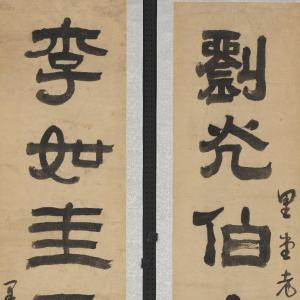 里堂老
劉光伯
李如圭